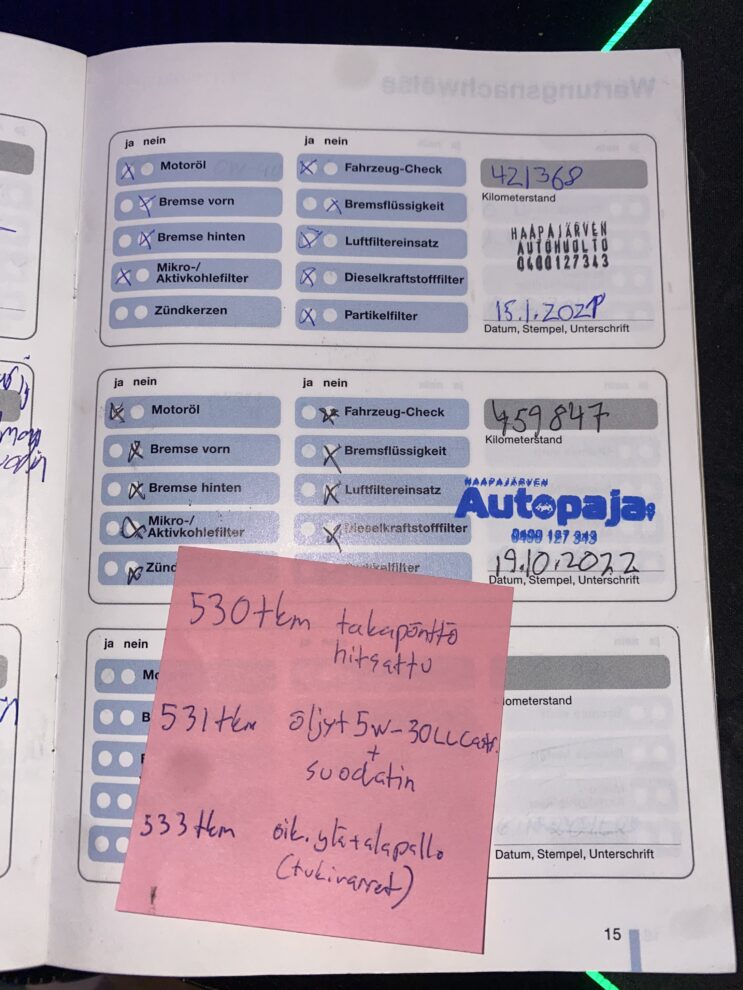 ja nein
ja nein
Motoröl
Fahrzeug-Check
421368
Kilometerstand
Bremse vorn
Bremsflüssigkeit
Bremse hinten
Luftfiltereinsatz
HAAPAJÄRVEN
AUTOHUOLTO
0400127343
Mikro-/
Aktivkohlefilter
Dieselkraftstofffilter
Zündkerzen
Partikelfilter
15.1.2021
Datum, Stempel, Unterschrift
ja nein
ja nein
Motoröl
Fahrzeug-Check
459847
Kilometerstand
Bremse vorn
Bremsflüssigkeit
Bremse hinten
Luftfiltereinsatz
HAAPAJÄRVEN
Autopaja
Mikro-/
Aktivkohlefilter
Dieselkraftstofffilter
0400 127 343
Zünd
19.10.2022
Datum, Stempel, Unterschrift
530tkm takapönttö
hitsattu
531tkm öljyt 5W-30LL Castr.
+
suodatin
533tkm oik. ylä+alapallo
(tukivarret)
ja nein
Kilometerstand
Datum, Stempel, Unterschrift
15